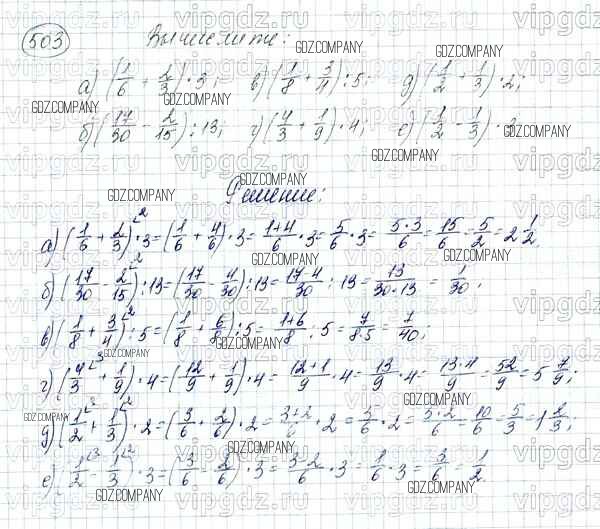 503 Вычислите:
а) (1/6 + 2/3) · 3; в) (1/8 + 3/4) : 5; д) (1/2 + 1/3) · 2;
б) (17/30 - 2/15) : 13; г) (4/3 + 1/9) · 4; е) (1/2 - 1/3) · 3;
Решение:
а) (1/6 + 2/3) · 3 = (1/6 + 4/6) · 3 = 1+4/6 · 3 = 5/6 · 3 = 5·3/6 = 15/6 = 5/2 = 2 1/2
б) (17/30 - 2/15) : 13 = (17/30 - 4/30) : 13 = 17-4/30 : 13 = 13/30·13 = 1/30;
в) (1/8 + 3/4) : 5 = (1/8 + 6/8) : 5 = 1+6/8 : 5 = 7/8·5 = 7/40;
г) (4/3 + 1/9) · 4 = (12/9 + 1/9) · 4 = 12+1/9 · 4 = 13/9 · 4 = 13·4/9 = 52/9 = 5 7/9;
д) (1/2 + 1/3) · 2 = (3/6 + 2/6) · 2 = 3+2/6 · 2 = 5/6 · 2 = 5·2/6 = 10/6 = 5/3 = 1 2/3;
е) (1/2 - 1/3) · 3 = (3/6 - 2/6) · 3 = 3-2/6 · 3 = 1/6 · 3 = 3/6 = 1/2.